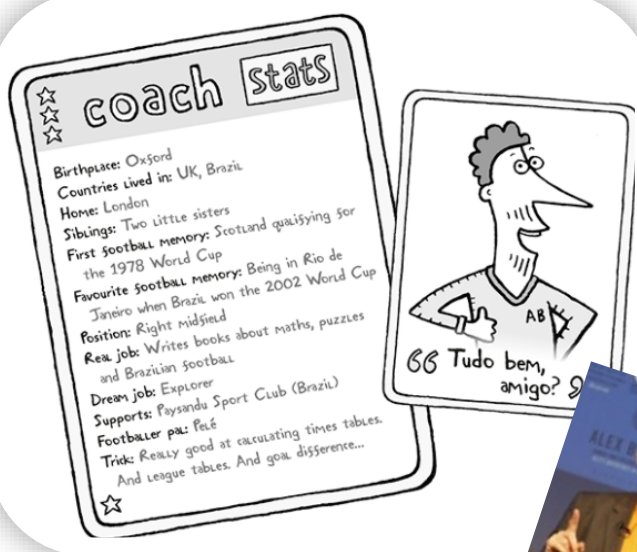 coach stats
Birthplace: Oxford
Countries lived in: UK, Brazil
Home: London
Siblings: Two little sisters
First football memory: Scotland qualifying for
the 1978 World Cup
Favourite football memory: Being in Rio de
Janeiro when Brazil won the 2002 World Cup
Position: Right midfield
Real job: Writes books about maths, puzzles
and Brazilian football
Dream job: Explorer
Supports: Paysandu Sport Club (Brazil)
Footballer pal: Pelé
Trick: Really good at calculating times tables.
And league tables. And goal difference...
AB
“Tudo bem,
amigo?”
ALEX B